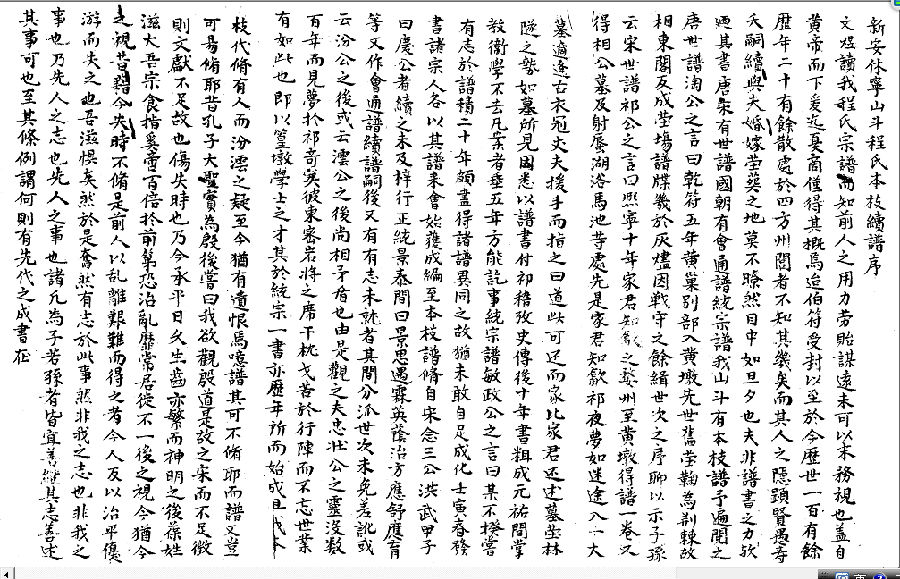 新安休寧山斗程氏本枝續譜序
文煜讀我程氏宗譜而知前人之用力勞貽謀遠未可以末務視也蓋自
黃帝而下爰及吳商僅得其概焉迨伯符受封以至於今歷世一百有餘
歷年二十有餘散處於四方州閭者不知其幾矣而其人之隱顯賢愚壽
夭嗣續與夫婚嫁塋葬之地莫不瞭然目中如旦夕也夫非譜書之力歟
廼其書唐宋有世譜國朝有會通譜統宗譜我山斗有本枝譜予遍閱之
唐世譜淘公之言曰乾符五年黃巢別部入黃墩先世舊塋鞠為荊棘故
相東閣反成塋場譜牒幾於灰燼因戰守之餘緝世次之序聊以示子孫
云宋世譜祁公之言曰熙寧十年家君知歙之婺州至黃墩得譜一卷又
得相公墓及射蜃湖浴馬池等處先是家君知歙祁夜夢如迷途入一大
墓適逢古衣冠丈夫援手而指之曰道此可还而家比家君还述墓塋林
隧之勢如墓所見因悉以譜書付祁稽攷史傳後十年書粗成元祐間掌
教衛學不去凡案者垂五年方能訖事統宗譜敏政公之言曰某不揆嘗
有志於譜積二十年頗盡得諸譜異同之故猶未敢自足成化士寅春發
書諸宗人各以其譜來會始獲成編至本枝譜脩自宋念三公洪武甲子
曰慶公者續之未及梓行正統景泰間曰景思遇霖英蔭治方應舒應育
等又作會通譜蹟譜嗣後又有有志未就者其間分派世次未免差訛或
云汾公之後或云澐公之後尚相矛盾也由是觀之夫忠壯公之靈沒數
百年而見夢於祁奇矣彼東密岩將之席干枕戈苦於行陣而不忘世業
有如此也即以篁墩學士之才其於統宗一書亦歷年所而始成且我本
枝代脩有人而汾澐之疑至今猶有遺恨焉嘻譜其可不脩耶而譜又豈
可易脩耶昔孔子大聖實為殷後嘗曰我欲觀殷道是故之宋而不足徵
則文獻不足故也傷失時也乃今承平日久生齒亦繁而神明之後葆姓
滋大吾宗食指奚啻百倍於前第恐治亂靡常居徙不一後之視今猶今
之視昔難今失時不脩是前人以亂離艱難而得之者今人反以治平優
游而失之也吾滋惧矣然於是奮然有志於此事然非我之志也非我之
事也乃先人之志也先人之事也諸凡為子若孫者皆宜善繼其志善述
其事可也至其條例謂何則有先代之成書在